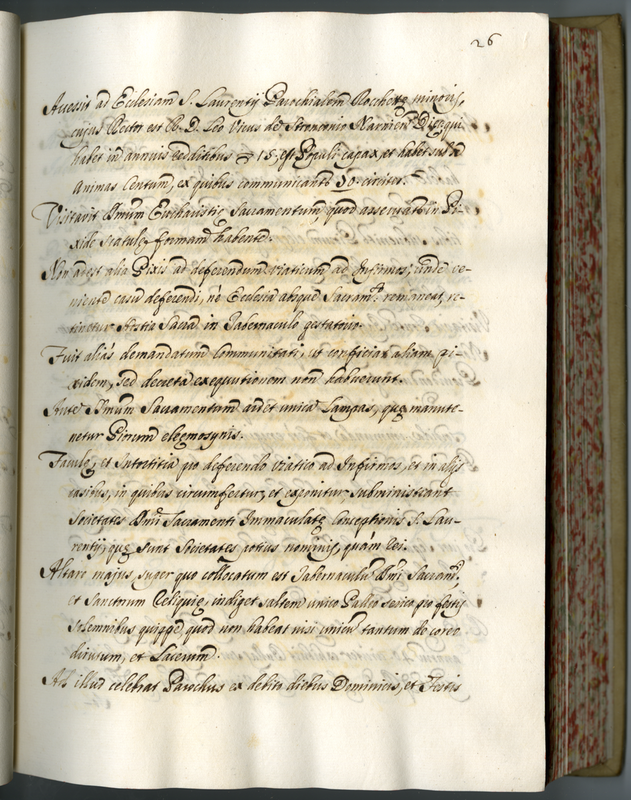 26
Accessit ad Ecclesiam S. Laurentij Parochialem Rocchettę minoris,
cujus Rector est R. D. Leo Vicus de Stronconio Narnien. Dięc. qui
habet in annuis redditibus 18. est Populi capax, et habet sub se
Animas Centum, ex quibus communicant 50. circiter.
Visitavit Smum Eucharistię Sacramentum, quod asservatur in Pi-
xide scatulę formam habente.
Non adest alia Pixis ad deferendum viaticum ad Infirmos, unde ve-
niente casu deferendi, ne Ecclesia absque Sacram.to remaneat, re-
tinetur Hostia Sacra in Tabernaculo gestatorio.
Fuit aliàs demandatum Communitati, ut conficiat aliam pi-
xidem, sed decreta exequutionem non habuerunt.
Ante Smum Sacramentum ardet unica Lampas, quę manute-
netur Piorum eleemosynis.
Facule, et Intretitia pro deferendo viatico ad Infirmos, et in alijs
casibus, in quibus circumfertur, et exponitur subministrant
Societates Smi Sacramenti Immaculatę Conceptionis S. Lau-
rentij, quę sunt Societates potius nominis, quàm rei.
Altare majus, super quo collocatum est Tabernaculum Smi Sacram.ti,
et Sanctorum Reliquię, indiget saltem unico Pallio serico pro festis
solemnibus quippe quod non habeat nisi unicum tantum de coreo
dirutum, et Lacerum.
Ad illud celebrat Parochus ex debito diebus Dominicis, et Festis